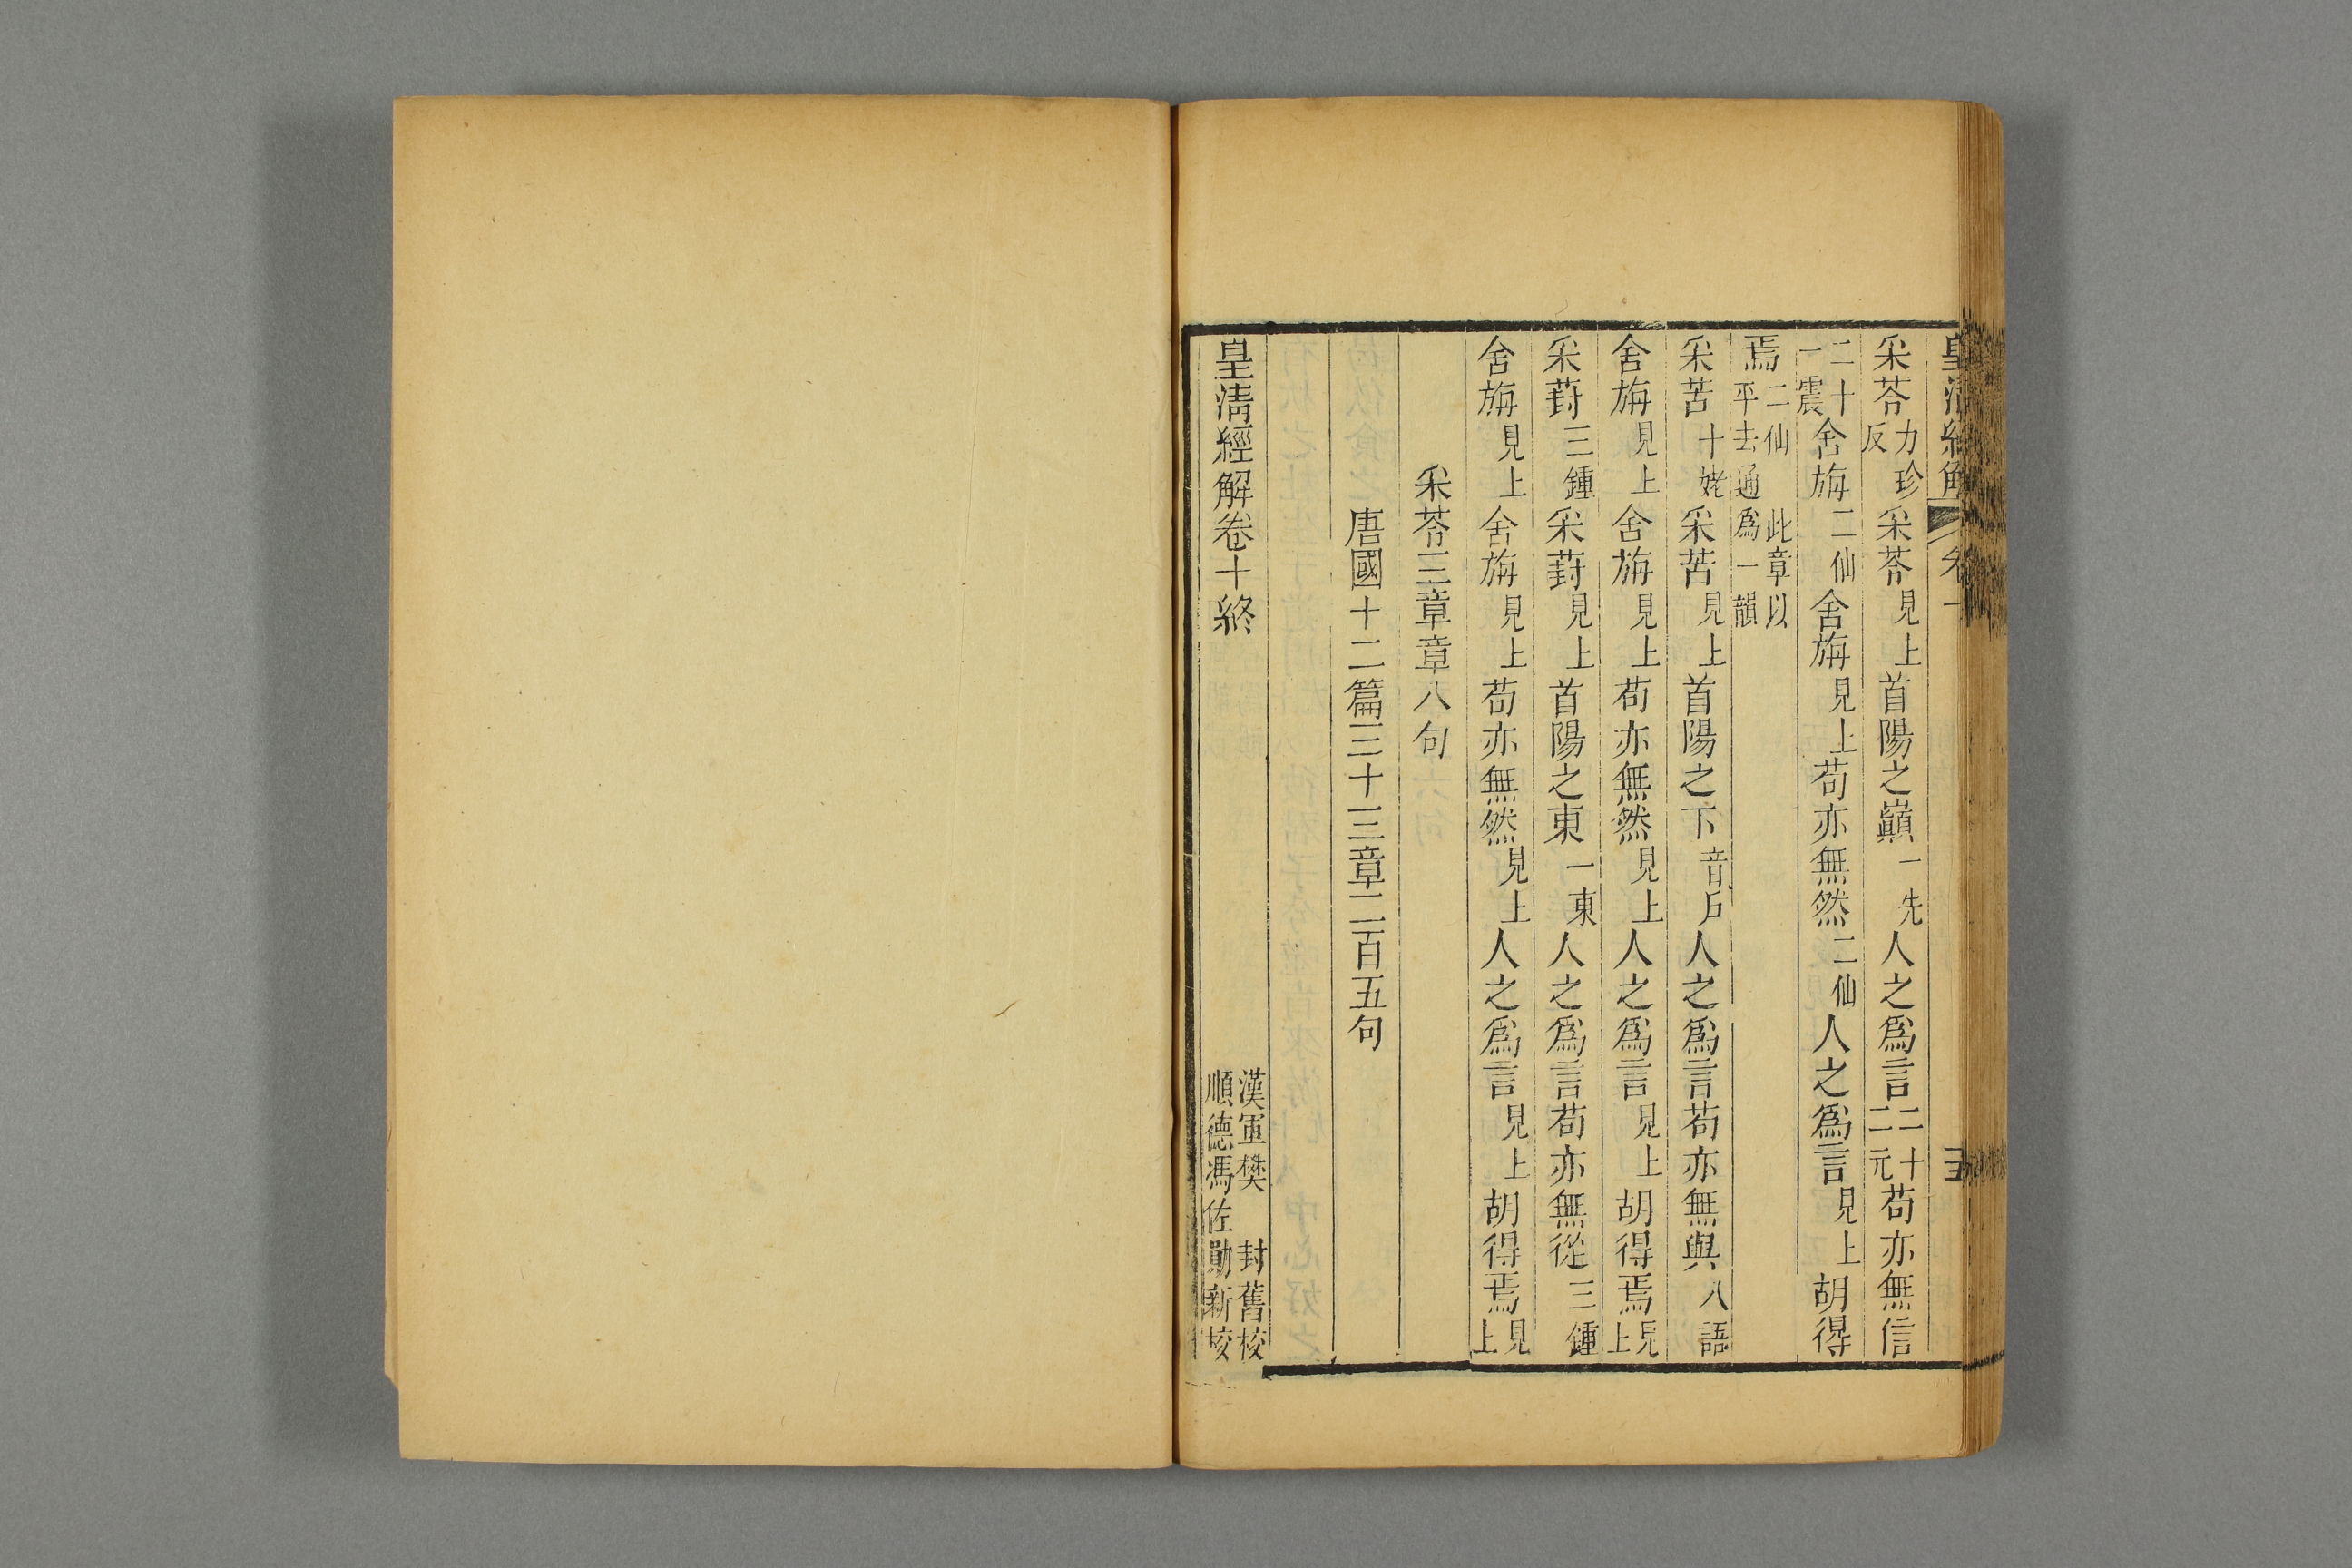 皇清經解 卷十
采苓力珍反采苓見上首陽之巔一先人之爲言二十二元苟亦無信
二十一震舍旃二仙舍旃見上苟亦無然二仙人之爲言見上胡得
焉二仙此章以平去通爲一韻
采苦十姥采苦見上首陽之下音戶人之爲言苟亦無與八語
舍旃見上舍旃見上苟亦無然見上人之爲言見上胡得焉見上
采葑三鍾采葑見上首陽之東一東人之爲言苟亦無從三鍾
舍旃見上舍旃見上苟亦無然見上人之爲言見上胡得焉見上
采苓三章章八句
唐國十二篇三十三章二百五句
皇清經解卷十終
漢軍樊封舊校
順德馮佐勛新校